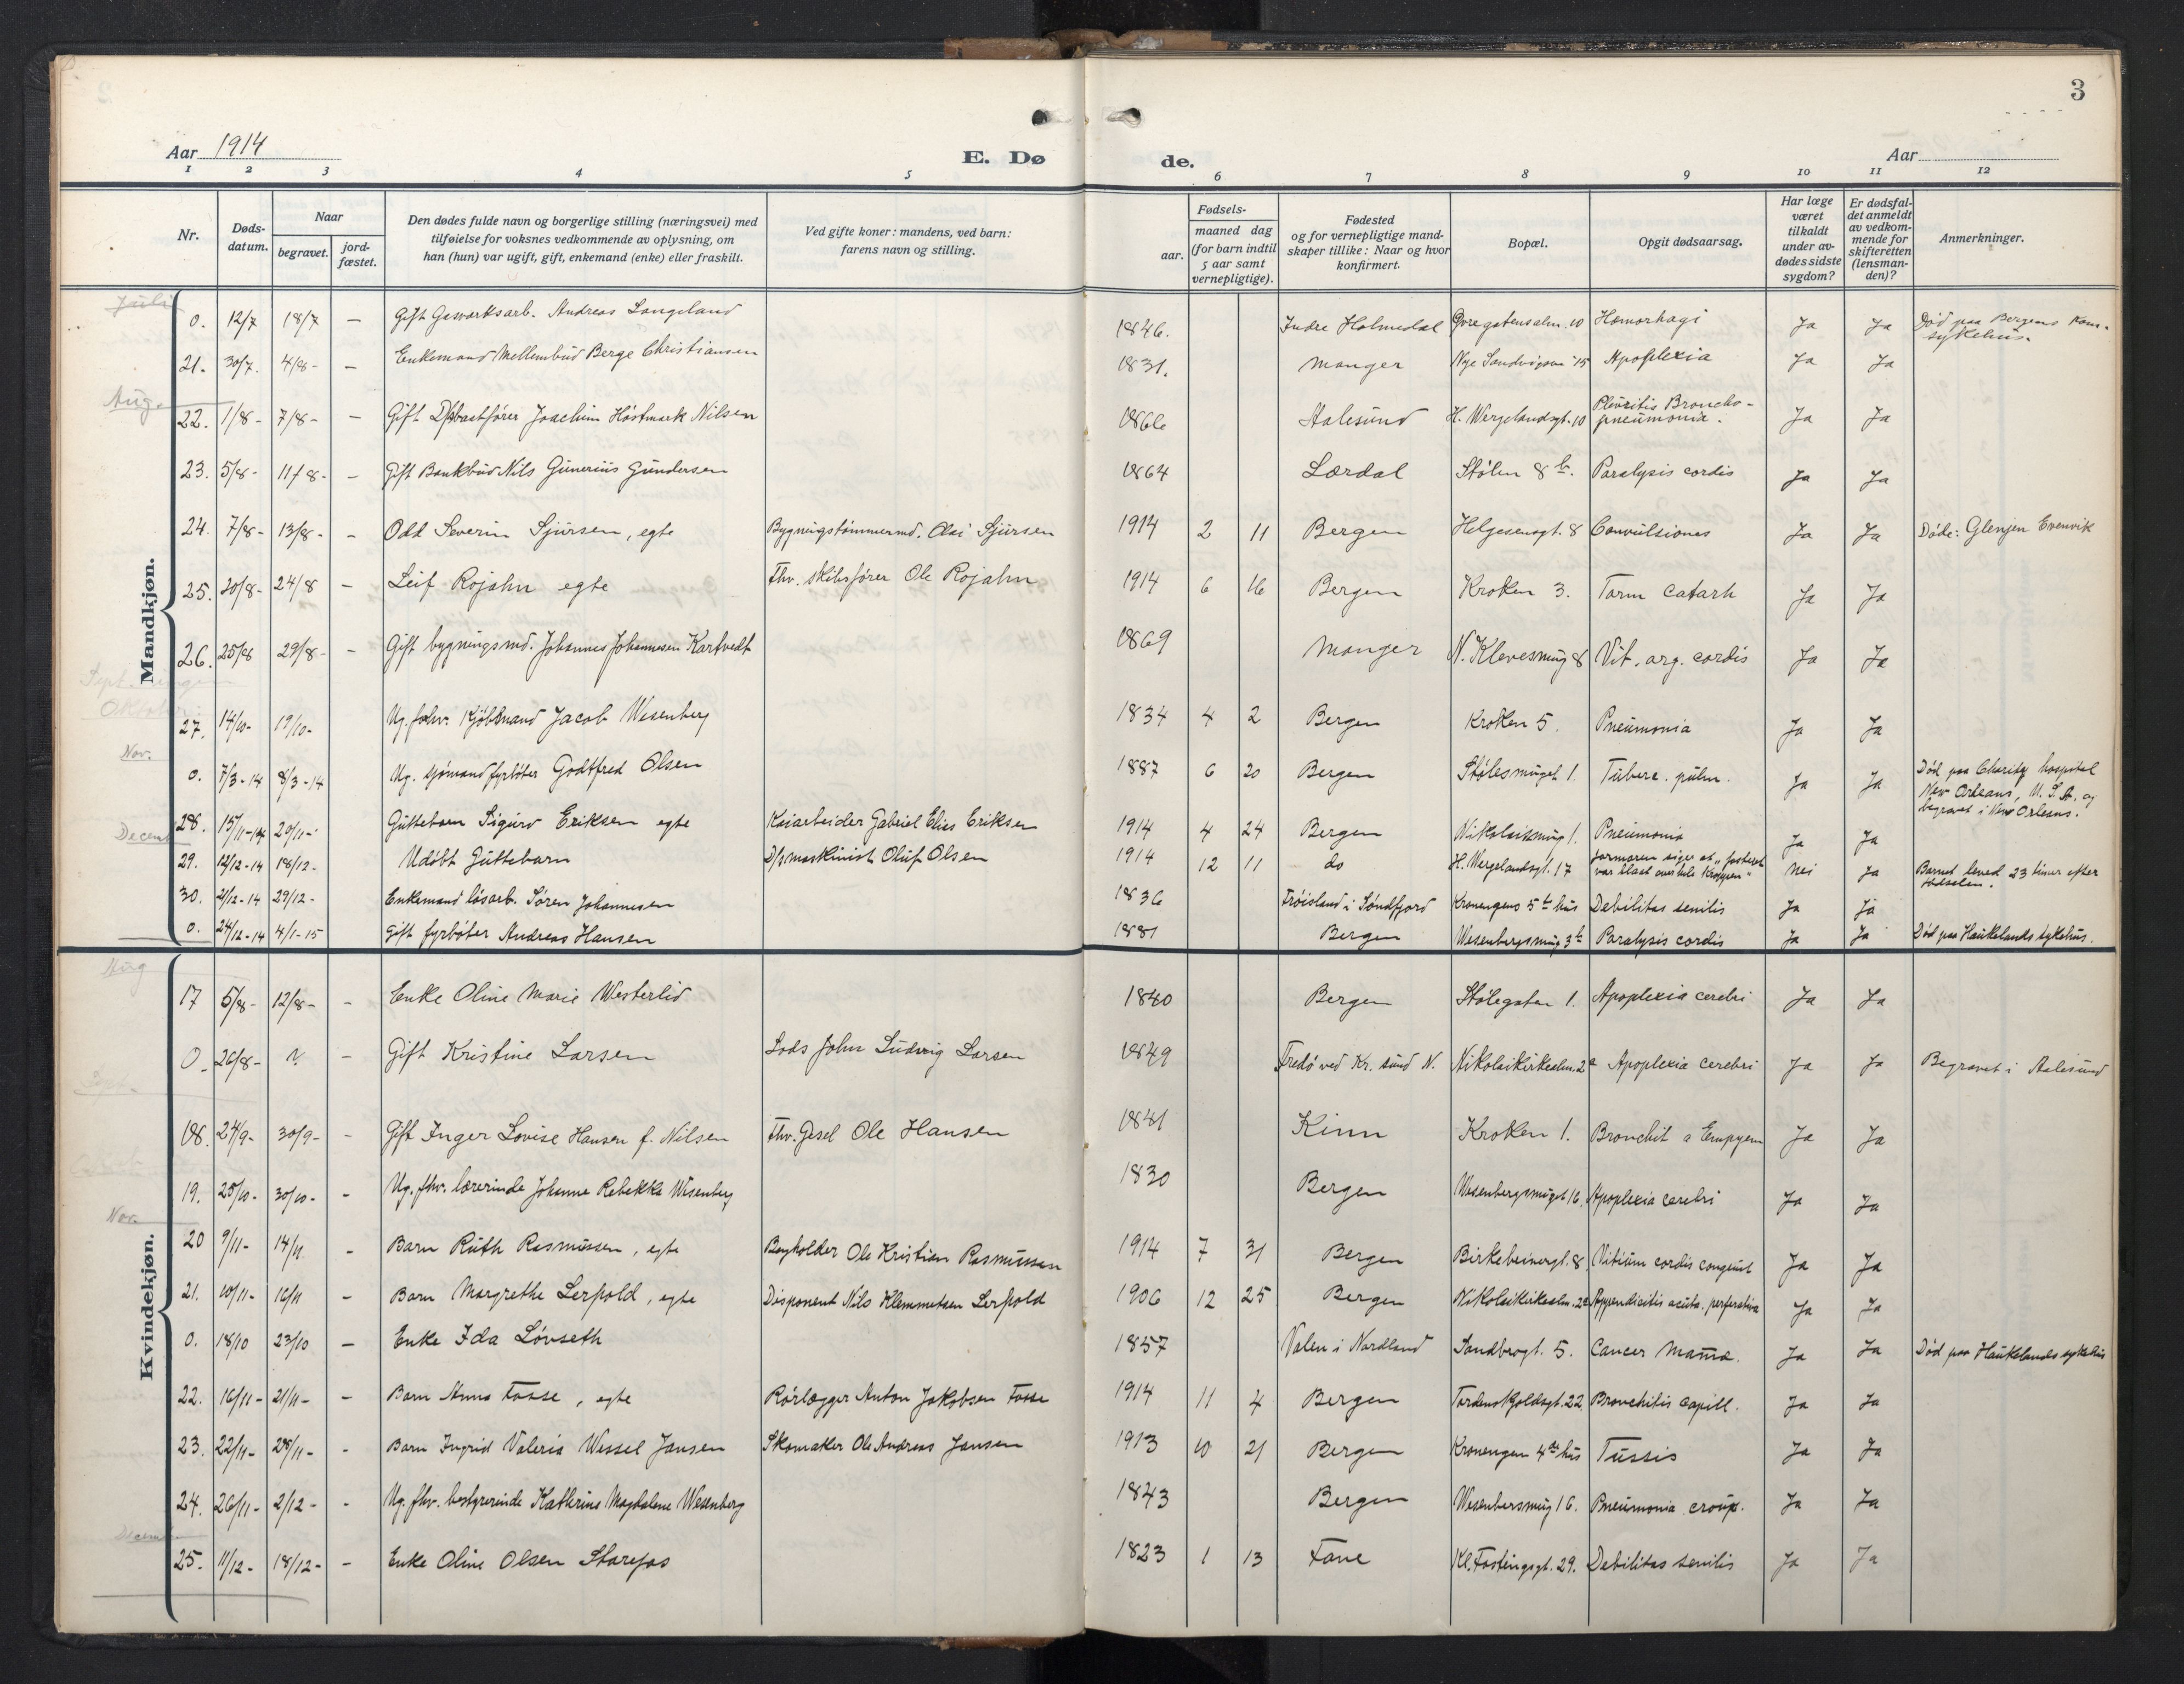 3
Aar 1914
E. Dø de.
Aar
1 2 3 4 5 6 7 8 9 10 11 12
Nr.
Døds-
datum.
Naar
begravet.
jord-
fæstet.
Den dødes fulde navn og borgerlige stilling (næringsvei) med
tilføielse for voksnes vedkommende av oplysning, om
han (hun) var ugift, gift, enkemand (enke) eller fraskilt.
Ved gifte koner: mandens, ved barn:
farens navn og stilling.
Fødsels-
aar.
maaned dag
(for barn indtil
5 aar samt
vernepligtige).
Fødested
og for vernepligtige mand-
skaper tillike: Naar og hvor
konfirmert.
Bopæl.
Opgit dødsaarsag.
Har læge
været
tilkaldt
under av-
dødes sidste
sygdom?
Er dødsfal-
det anmeldt
av vedkom-
mende for
skifteretten
(lensman-
den)?
Anmerkninger.
Mandkjøn.
Juli
0. 12/7 18/7 — Gift Gasværksarb. Andreas Langeland 1846. Indre Holmedal Øvregatensalm. 10 Hæmorhagi Ja Ja Død paa Bergens kom.
sykehus.
21. 30/7. 4/8 - — Enkemand Mellembud Berge Christiansen 1831. Manger Nye Sandvigsvei 15 Apoplexia Ja Ja
Aug.
22. 1/8 - 7/8 - — Gift D/sbaatfører Joachim Høstmark Nilsen 1866 Aalesund H. Wergelandsgt. 10 Pleuritis Broncho-
pneumonia. Ja Ja
23. 5/8 - 11/8 - — Gift Bankbud Nils Gunerius Gundersen 1864 Lærdal Stølen 8 b. Paralysis cordis Ja Ja
24. 7/8 - 13/8 - - Odd Severin Sjursen, egte Bygningstømmermd. Olai Sjursen 1914 2 11 Bergen Helgesensgt. 8 Convulsiones Ja Ja Døde: Glenjen Evenvik
25. 20/8 - 24/8 — Leif Rojahn egte Fhv. skibsfører Ole Rojahn 1914 6 16 Bergen Kroken 3. Tarm catarh Ja Ja
26. 25/8 29/8 - - Gift bygningsmd. Johannes Johannesen Kartvedt 1869 Manger N. Klevesmug 8 Vit. org. cordis Ja Ja
Sept. ingen
Oktober
27. 14/10- 19/10- Ug. fohv. Kjøbmand Jacob Wesenberg 1834 4 2 Bergen Kroken 5. Pneumonia Ja Ja
Nov.
0. 7/3-14 8/3-14 Ug. sjømand fyrbøter Godtfred Olsen 1887 6 20 Bergen Stølesmuget 1. Tuberc. pulm. Ja Ja Død paa Charity hospital
New Orleans, U. S. A. og
begravet i New Orleans.
28. 15/11-14 20/11- Guttebarn Sigurd Eriksen egte Kaiarbeider Gabriel Elias Eriksen 1914 4 24 Bergen Nikolaismug 1. Pneumonia Ja Ja
Decemb
29. 12/12-14 18/12- Udøbt Guttebarn D/smaskinist Oluf Olsen 1914 12 11 do H. Wergelandsgt. 17 Jormoren siger at "fosteret
var blaat over hele kroppen" Nei Ja Barnet leved 23 timer efter
fødselen.
30. 21/12-14 29/12- Enkemand løsarb. Søren Johannesen 1836 Trøisland i Søndfjord Kronengens 5te hus Debilitas senilis Ja Ja
0. 24/12-14 4/1-15 Gift fyrbøter Andreas Hansen 1881 Bergen Wesenbergsmug 3b Paralysis cordis Ja Ja Død paa Haukelands sykehus.
Kvindekjøn.
Aug
17 5/8- 12/8- - Enke Oline Marie Westerlid 1840 Bergen Stølegaten 1. Apoplexia cerebri Ja Ja
0. 26/8- ? — Gift Kristine Larsen Lods John Ludvig Larsen 1849 Fredø ved Kr. sund N. Nikolaikirkealm. 2a Apoplexia cerebri Ja Ja Begravet i Aalesund
18. 24/9- 30/9- - Gift Inger Lovise Hansen f. Nilsen Fhv. Gesel Ole Hansen 1841 Kinn Kroken 1. Bronchit a Empyem Ja Ja
19. 25/10- 30/10- - Ug. fhv. lærerinde Johanne Rebekka Wesenberg 1830 Bergen Wesenbergsmuget 16. Apoplexia cerebri Ja Ja
Nov.
20 9/11- 14/11 - Barn Ruth Rasmussen, egte Bogholder Ole Kristian Rasmussen 1914 7 31 Bergen Birkebeinergt. 8 Vitium cordis congenit Ja Ja
21. 10/11- 16/11 - Barn Margrethe Lerpold, egte Disponent Nils Klemmetsen Lerpold 1906 12 25 Bergen Nikolaikirkealm. 2a Appendicitis acuta perforativa Ja Ja
0. 18/10 23/10 — Enke Ida Løvseth 1857 Valen i Nordland Sandbrogt. 5. Cancer Mama. Ja Ja Død paa Haukelands sykehus
22. 16/11- 21/11- - Barn Anna Fosse, egte Rørlægger Anton Jakobsen Fosse 1914 11 4 Bergen Tordenskjoldsgt. 22 Bronchitis capill. Ja Ja
23. 22/11- 28/11- - Barn Ingrid Valeria Wessel Jansen Skomaker Ole Andreas Jansen 1913 10 21 Bergen Kronengen 4de hus Tussis Ja Ja
24. 26/11- 2/12- - Ug. fhv. bestyrerinde Kathrine Magdalene Wesenberg 1843 Bergen Wesenbersmug 16. Pneumonia croup. Ja Ja
Decemb
25. 11/12- 18/12- - Enke Oline Olsen Storefos 1823 1 13 Fane Kl. Fostingsgt. 29. Debilitas senilis Ja Ja